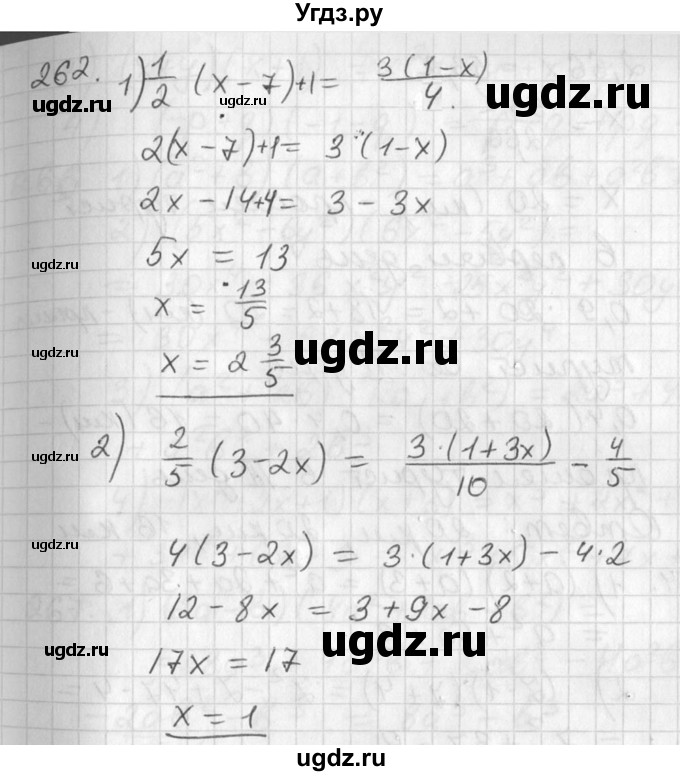 Угдз.ру
262. 1) 1/2 (x − 7)+1 = 3(1−x)/4.
ugdz.ru ugdz.ru
2(x − 7)+1 = 3·(1−x)
2x − 14+4 = 3 − 3x
ugdz.ru 5x = 13
x = 13/5
ugdz.ru x = 2 3/5 ugdz.ru
ugdz.ru 2) 2/5 (3−2x) = 3·(1+3x)/10 − 4/5
ugdz.ru 4(3−2x) = 3·(1+3x) − 4·2
12 − 8x = 3 + 9x − 8
ugdz.ru 17x = 17 ugdz.ru
x = 1
ugdz.ru